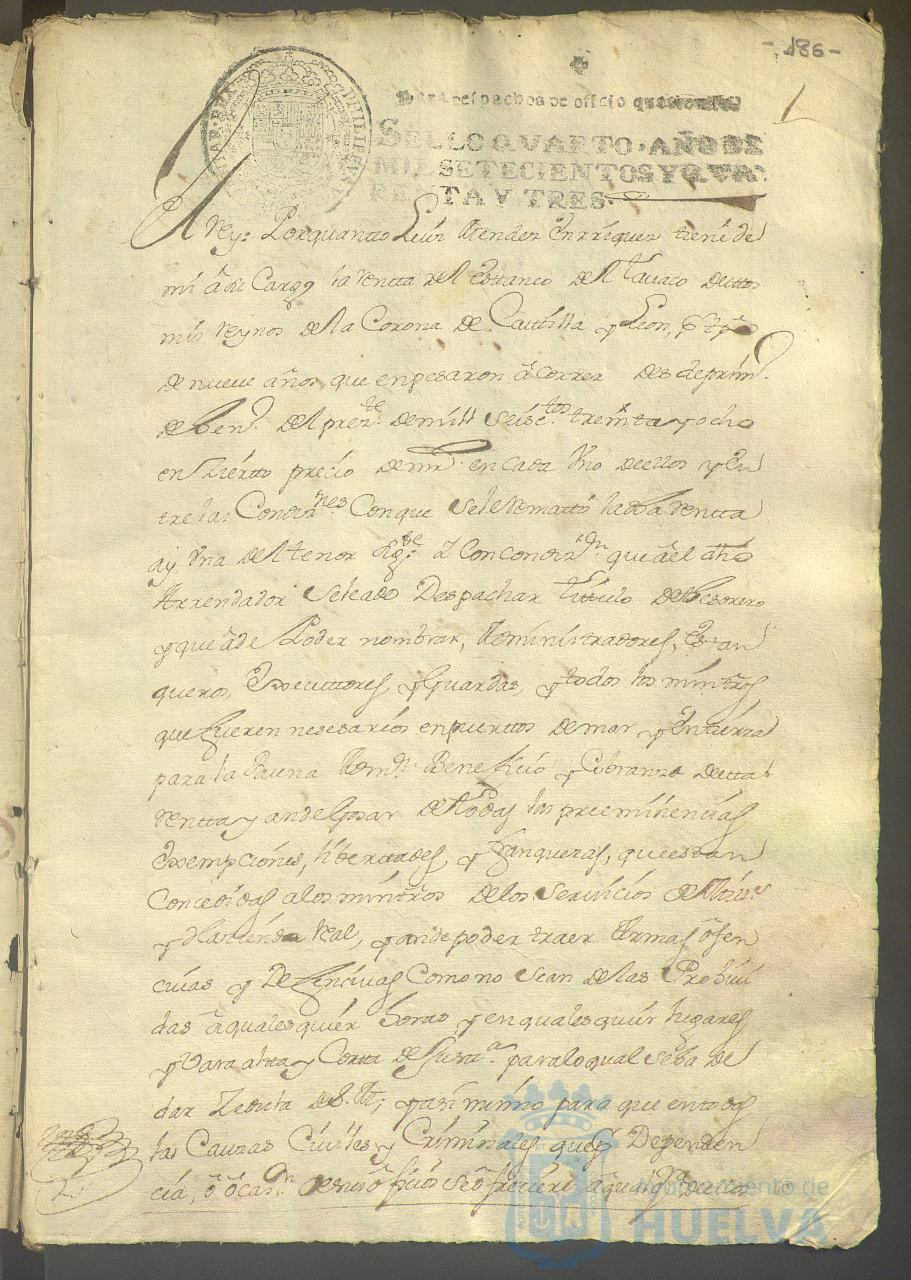 - 186 -
1
Para despachos de oficio
SELLO QVARTO, AÑO DE
MIL SETECIENTOS Y QVA
RENTA Y TRES.
Rey: Porquantto Luis Mendez Enrriquez tiene de
mi â su Cargo la rentta del Esttanco del Tavaco de ttos
mis reynos de la Corona de Castilla y Leon, por tpo
de nueve años que enpesaron â correr desde prim.
de Hen.º del prez.te de mill seisc.tos treinta y ocho
en zierto precio de mrs en cada Vno de ellos y En
tre las Condiz.nes Conque sele Remattó la dha rentta
ay Vna del tenor sig.te Con condiz.on que âel dho
Arrendador sele a de Despachar titulo de thesorero
y que âde Poder nombrar, Administradores, Estan
queros, Executtores, y Guardas, y todos los minitros
que fueren nesesarios en puertos de mar y En tierra
para la Buena Adm.on Beneficio y Cobranza de etta
rentta y an de Gosar de todas las preeminencias
Exempciones, livertades, y franquezas, que estan
Concedidas a los minitros de los Servicios de Mill.s
y Hacienda Real, y an de poder traer Armas ôfen
civas y Defencivas Como no Sean de las Prohivi
das â quales quier horas y en quales quier lugares
y Vara alta y Cortta de Justt.a para lo qual se ha de
dar Zedula de S. M.; y asi mismo para que en todas
las Causas Civiles y Criminales que Dependen
cia, ô ôcas.on de su ôficio se ôfreciere a qualq.ra de
Ayuntamiento de
HUELVA